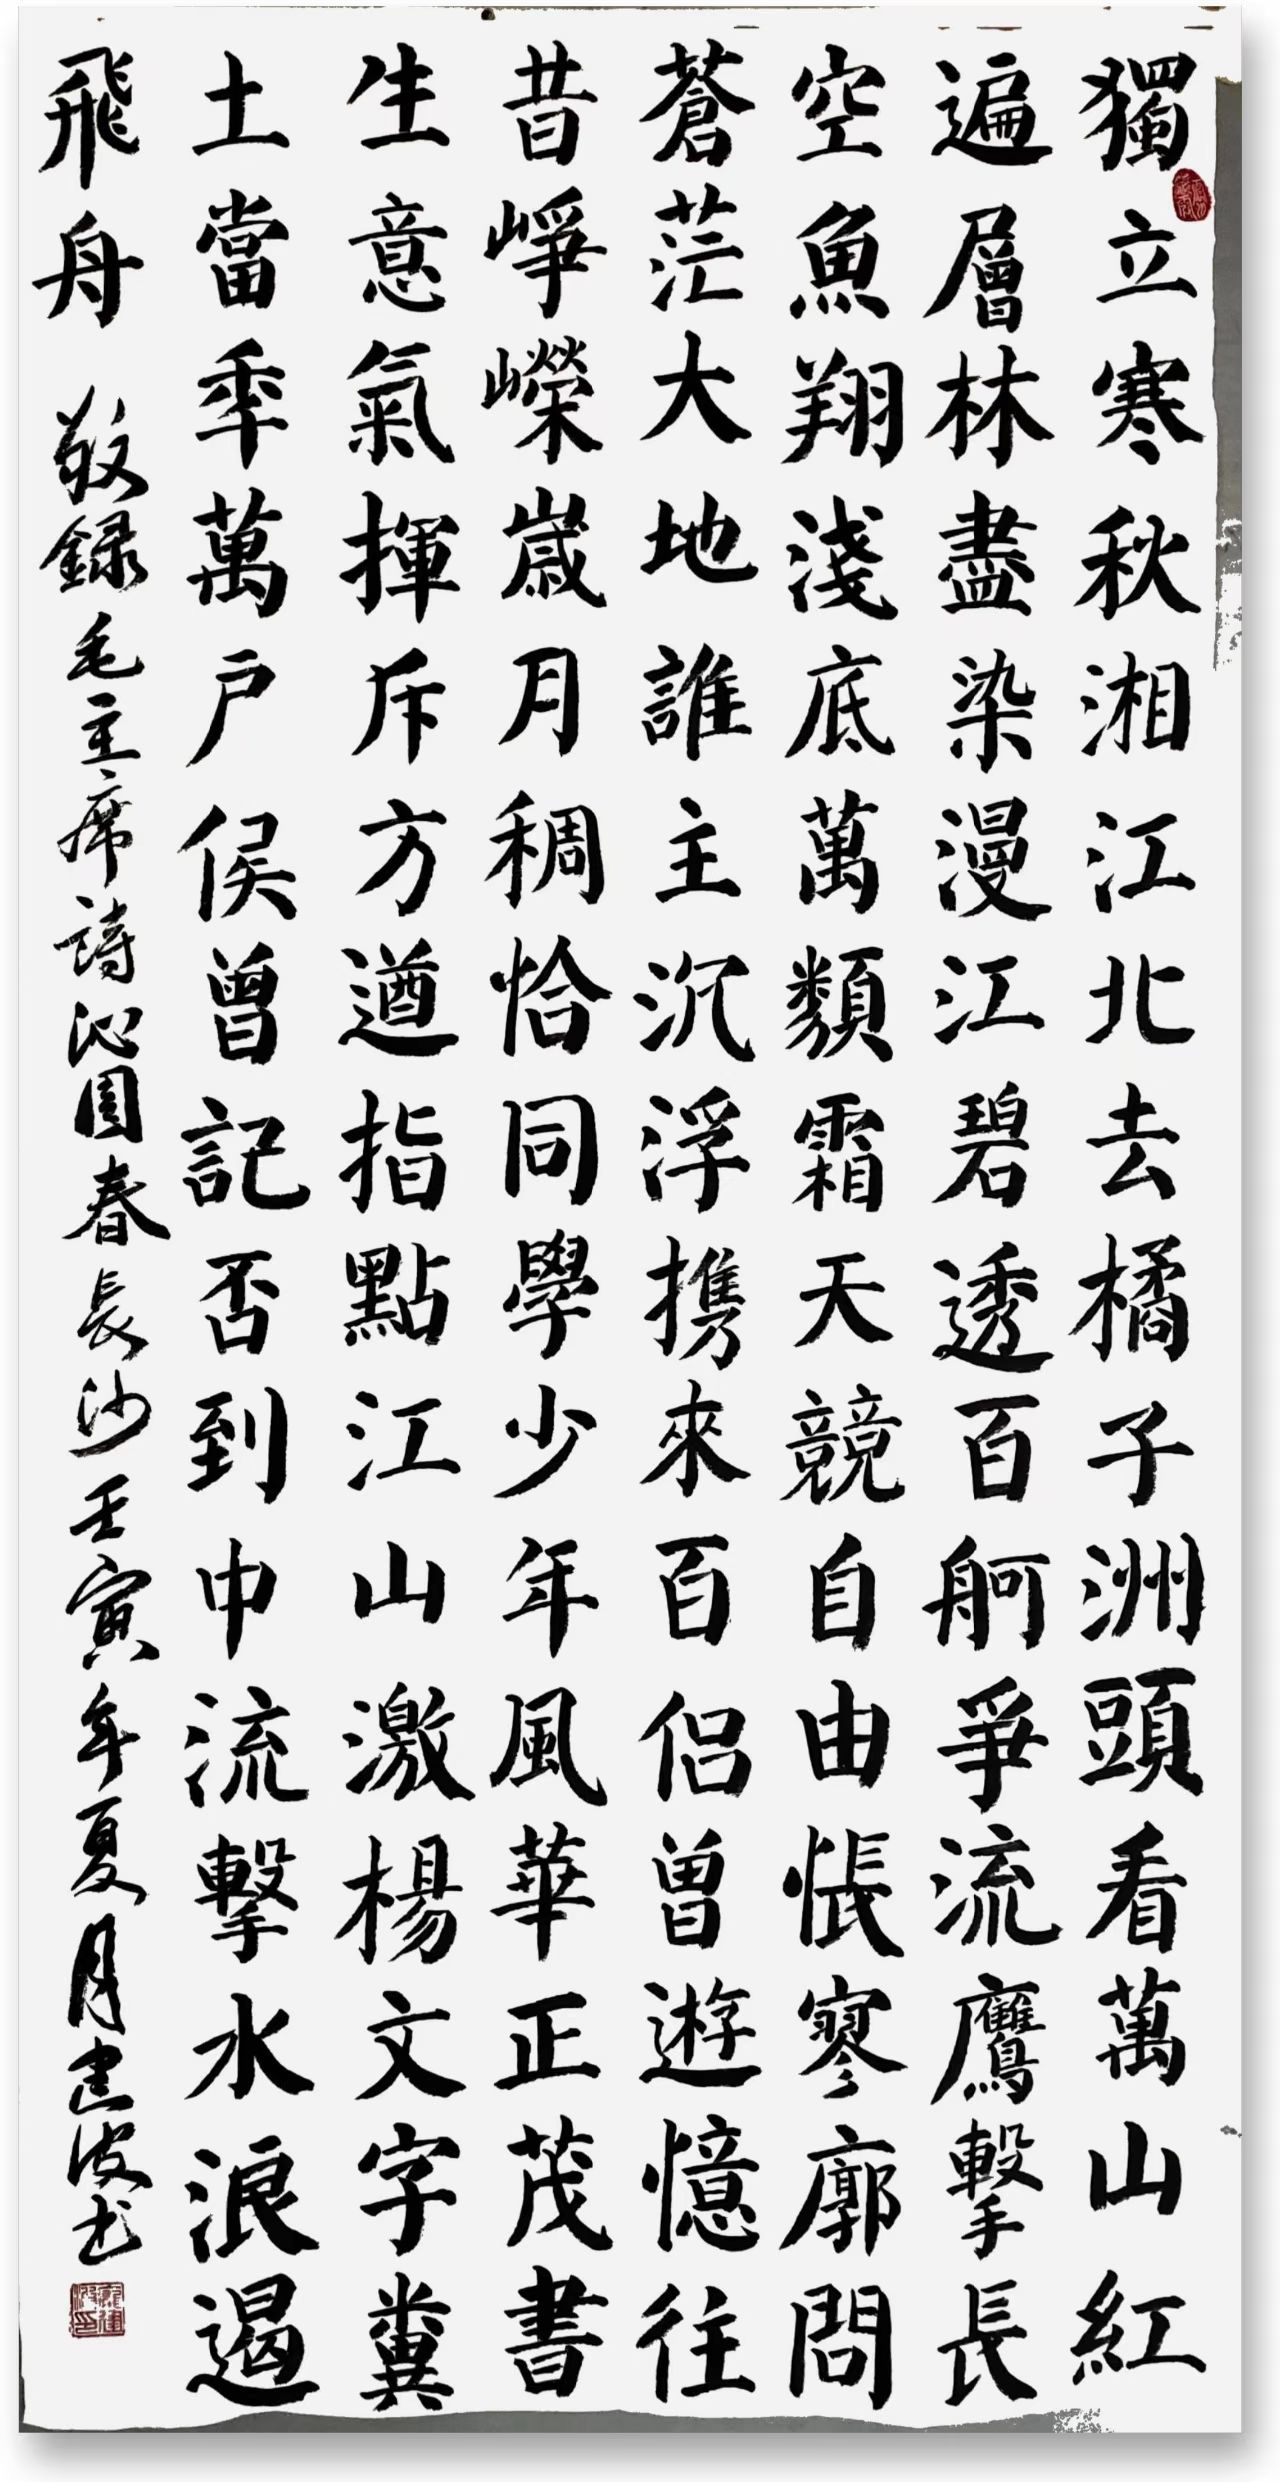 獨立寒秋湘江北去橘子洲頭看萬山紅
遍層林盡染漫江碧透百舸爭流鷹擊長
空魚翔淺底萬類霜天競自由悵寥廓問
蒼茫大地誰主沉浮携來百侣曾遊憶往
昔崢嶸歲月稠恰同學少年風華正茂書
生意氣揮斥方遒指點江山激楊文字糞
土當年萬户侯曾記否到中流擊水浪遏
飛舟 敬録毛主席詩沁園春長沙壬寅年夏月建波书